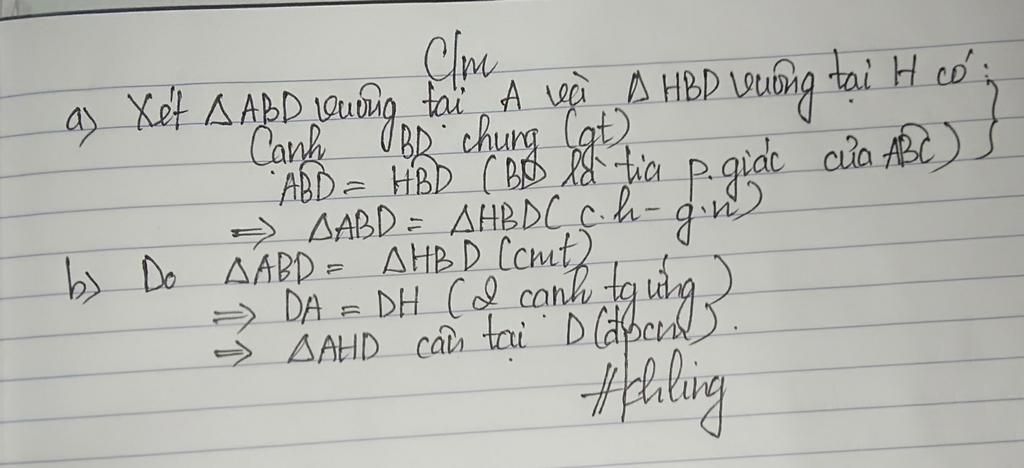 C/m
a) Xét ΔABD vuông tại A và ΔHBD vuông tại H có:
Cạnh BD chung (gt)
ABD = HBD (BD là tia p.giác của ABC) }
=> ΔABD = ΔHBD( c.h - g.n)
b) Do ΔABD = ΔHBD (cmt)
=> DA = DH (2 cạnh tg ứng)
=> ΔAHD cân tại D (đpcm).